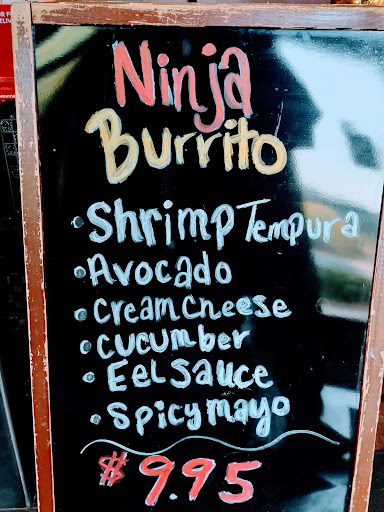 Ninja
Burrito
• Shrimp Tempura
• Avocado
• Cream Cheese
• Cucumber
• Eel Sauce
• Spicy mayo
$9.95